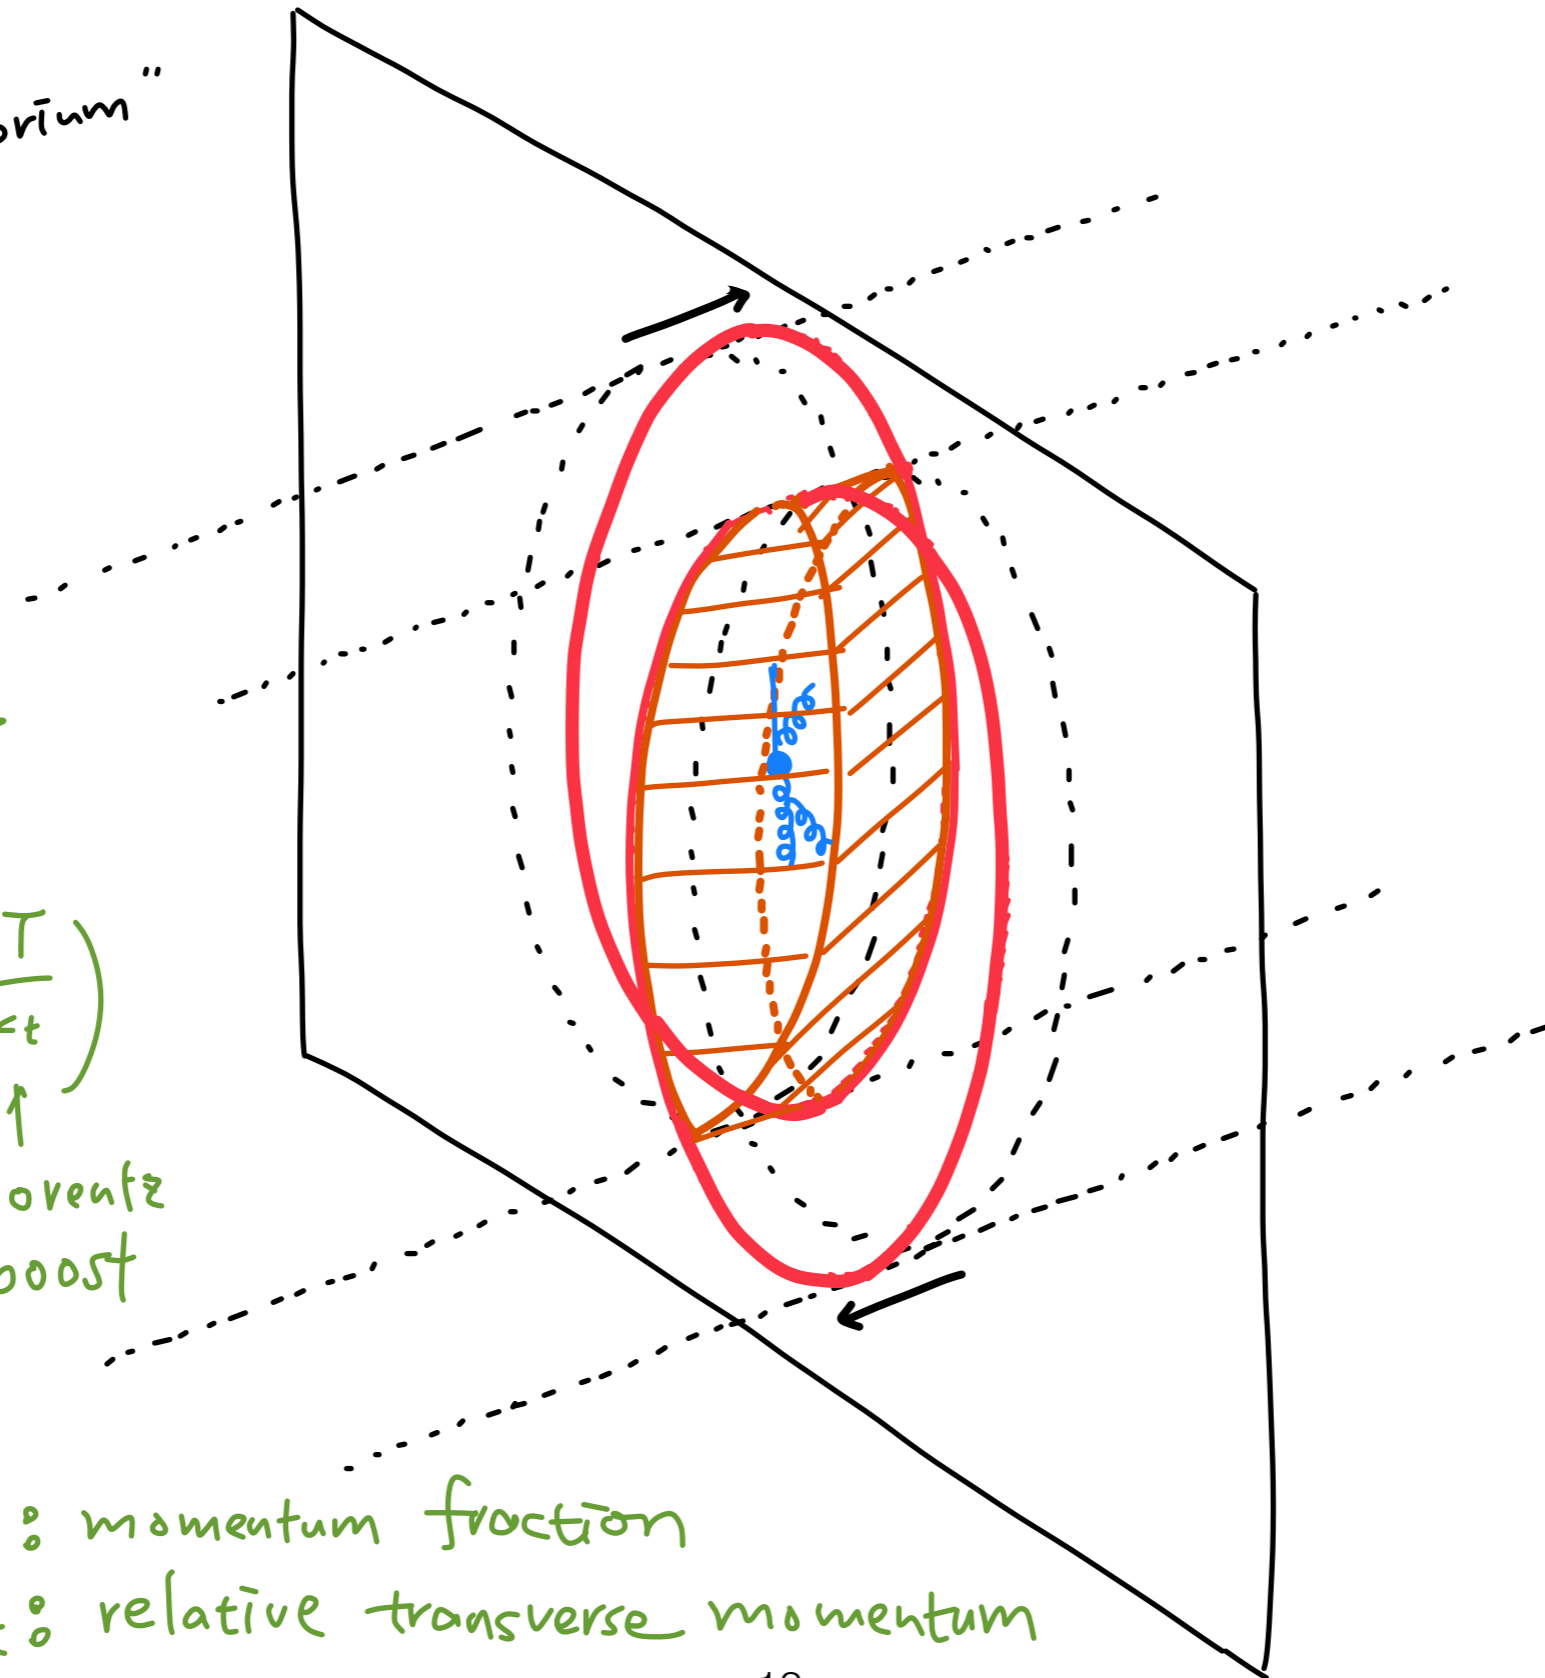 orium"
T
t
orentz
boost
: momentum fraction
: relative transverse momentum